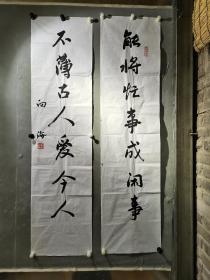 能将忙事成闲事
不薄古人爱今人
向海